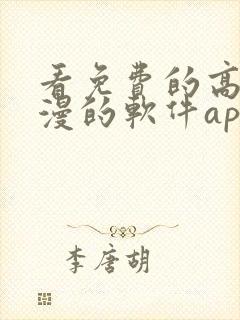 看免費的高
漫的軟件ap
李唐胡